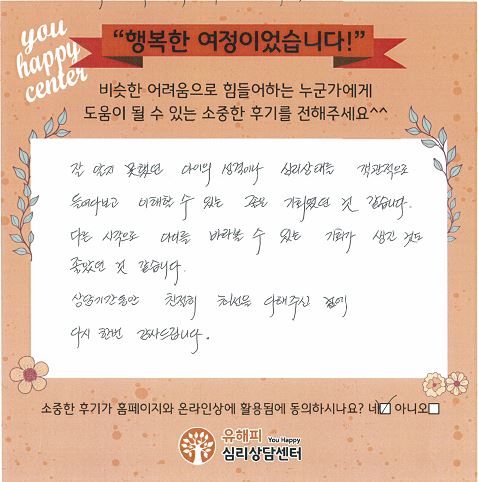 you
happy
center
“행복한 여정이었습니다!”
비슷한 어려움으로 힘들어하는 누군가에게
도움이 될 수 있는 소중한 후기를 전해주세요^^
잘 알지 못했던 나이의 성격이나 심리상태를 객관적으로
들여다보고 이해할 수 있는 좋은 기회였던 것 같습니다.
다른 시각으로 나이를 바라볼 수 있는 기회가 생긴 것도
좋았던 것 같습니다.
상담기간동안 친절히 최선을 다해주신 점에
다시 한번 감사드립니다.
소중한 후기가 홈페이지와 온라인상에 활용됨에 동의하시나요? 네☑ 아니오☐
유해피 You Happy
심리상담센터